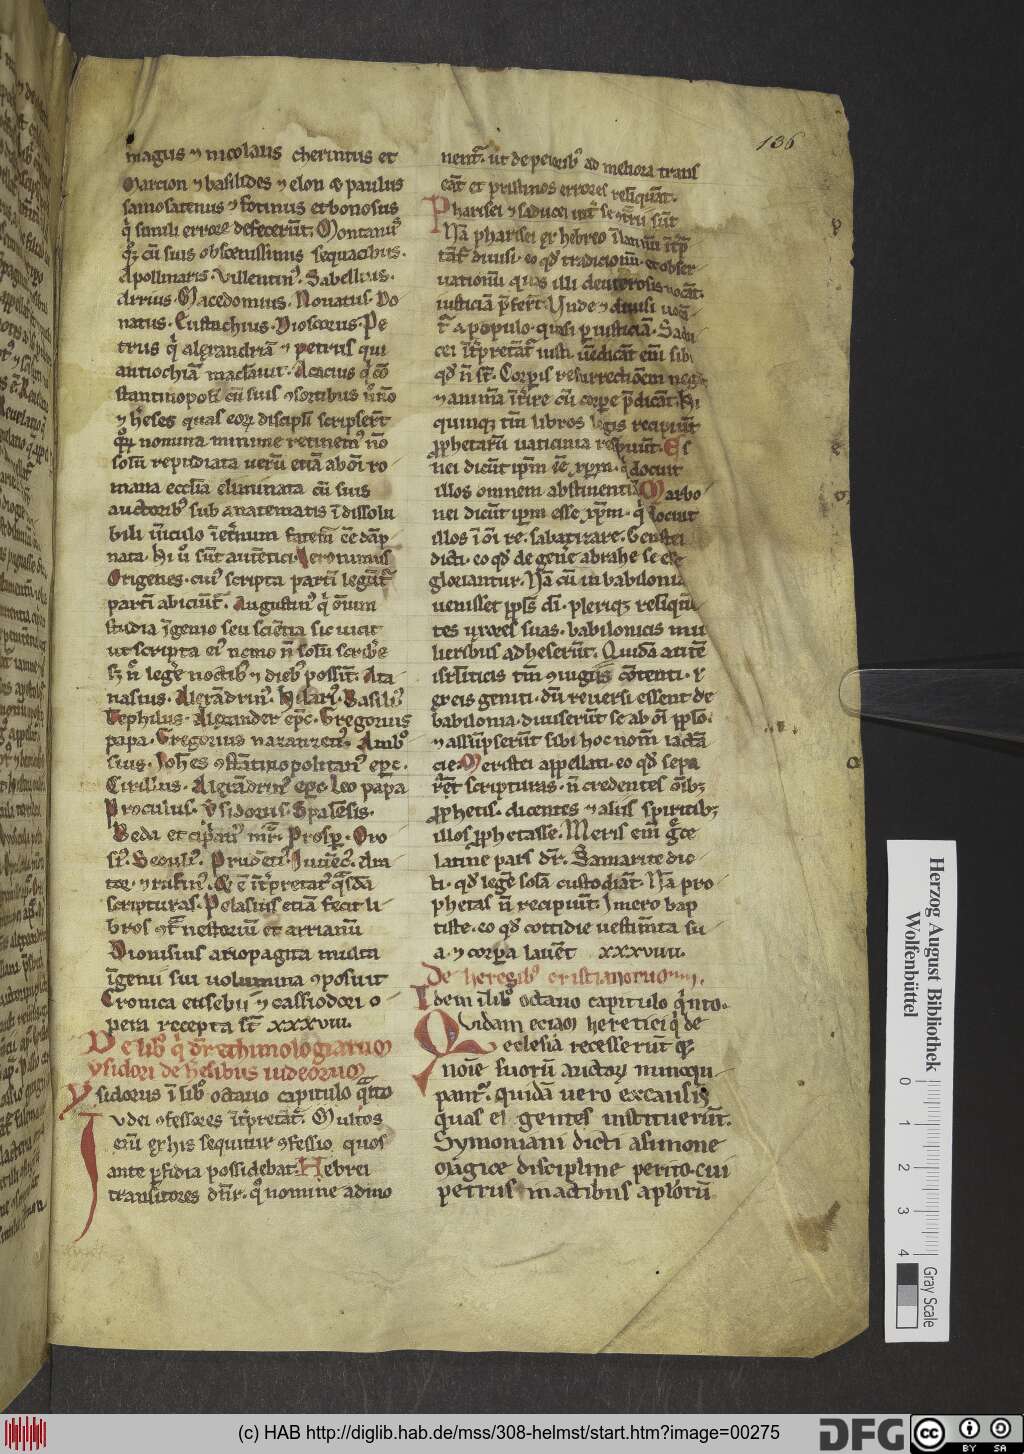 136
magus ⁊ nicolaus cherintus et
Marcion ⁊ basilides ⁊ eion & paulus
samosatenus ⁊ fotinus et bonosus
q̇ simili errore defecerūt. Montanꝰ
qꝫ cū suis obscenissimis sequacibus.
Apollinaris. Vallentinꝰ. Sabellius.
Arrius. Macedonius. Nouatus. Do
natus. Eustachius. Dioscorus. Pe
trus q̇ alexandriā ⁊ petrus qui
antiochiā maclauit. Acacius q̇ cō
stantinopoli cū suis ꝯsortibus
⁊ hēses quas eorꝝ discipli scripserūt
nomina minime retinemꝰ nō
solū repudiata uerū etiā ab oī ro
mana ecclia eliminata cū suis
auctoribꝰ sub anatematis īdissolu
bili uīculo īet̄num fatem̄ eē dāp̄
nata. Hi ů sūt autētici. Ieronimus
Origenes. cuiꝰ scripta partī legūt̄
partī abiciūt̄. Augustinꝰ q̇ oīum
studia īgenio seu sciētia sic uicit
ut scripta eiꝰ nemo n̄ solū scribe
sꝫ n̄ lege noctibꝰ ⁊ diebꝰ possit. Ata
nasius. Alexādrinꝰ. hilariꝰ. Basiliꝰ.
Tephilus. Alexander ep̄c. Gregorius
papa. Gregorius nazanzenꝰ. Ambꝰ
sius. Ioh̄es ꝯstātinopolitanꝰ ep̄c.
Cirillus. Alexādrinꝰ ep̄c. Leo papa
Proculus. ysidorus. Spalēsis.
Beda et cip̄anꝰ mr̄. Prosp̄. Oro
siꝰ. Seduliꝰ. Prudētiꝰ. Iuuēcꝰ. Ara
tor. ⁊ rufinꝰ. & ē īt̄pretatꝰ q̄sdā
scripturas. Pelasius etiā fecit li
bros nestoriū et arrianū
Dionisius ariopagita multa
īgenii sui uolumina ꝯposuit
Cronica eusebii ⁊ cassiodori o
pera recepta st̄ xxxviii.
De libꝰ q̇ dr̄ ethimologiarum
ysidori de h̄esibus iudeorum
Ysidorus ī libꝰ octauo capitulo q̄rto
Iudei ꝯfessores īt̄pretāt̄. Multos
eni ex his sequitur ꝯfessio quos
ante ꝑfidia possidebat. Hebrei
transitores dn̄r. qͦ nomine admo
nent̄. ut de peioribꝰ ad meliora trans
eāt et pristinos errores reliquāt.
Pharisei ⁊ saducei int̄ se ꝯtrarii sūt
Nā pharisei ex hebreo ī latinū īt̄p̄
tāt̄ diuisi. eo qd̛ traditionū et obser
uationū quas illi deuterosis uocāt.
iusticiā p̄fert̄. Vnde ⁊ diuisi uocā
t̄ a populo. quasi ꝑ iusticiā. Sadu
cei īt̄pretāt̄ iusti uēdicāt enī sibi
qd̛ n̄ st̄. Corꝑis resurrectiōem neg
⁊ animā īt̄ire cū corꝑe p̄dicāt. hi
quinqꝫ tm̄ libros legis recipiūt
ꝓphetarū uaticinia respuūt. Es
nei dicūt ip̄m eē xp̄m. q̇ docuit
illos omnem abstinentiā. Marbo
nei dicūt ip̄m esse xp̄m. q̇ docuit
illos ī oī re. sabatizare. Genistei
dicti. eo qd̛ de gene abrahe se esse
gloriantur. Nā cū in babiloniā
uenisset ppl̄s dī. pleriqꝫ reliquū
tes uxores suas. babilonicis mu
lieribus adheserūt. Quidā autē
isrl̄iticis tm̄ ꝯiugiis cōtenti. t̄
ex eis geniti. dū reuersi essent de
babilonia. diuiserūt se ab oī pplo.
⁊ assūpserūt sibi hoc nom̄ iactā
cie. Meristei appellati. eo qd̛ sepa
rēt scripturas. n̄ credentes oībꝫ
ꝓphetis. dicentes ⁊ aliis spiritibꝫ
illos ꝓphetasse. Meris enī ḡce
latine pars dr̄. Samarite dic
ti. qd̛ legē solā custodiāt. Nā pro
phetas n̄ recipiūt. Imero bap
tiste. eo qd̛ cottidie uestim̄ta su
a. ⁊ corꝑa lauēt xxxviiii.
De heresibꝰ cristianorum.
Idem ī libꝰ octauo capitulo q̇nto.
Quidam eciam heretici q̇ de
ecclesia recesserūt
noīe suorū auctorꝝ nuncqu
pant̄. quidā uero ex causis
quas ei gentes instituerūt.
Symoniani dicti a simone
magice discipline perito. cui
petrus in actibus aplorū
Herzog August Bibliothek
Wolfenbüttel
0 1 2 3 4
Gray Scale
(c) HAB http://diglib.hab.de/mss/308-helmst/start.htm?image=00275
DFG
cc BY SA